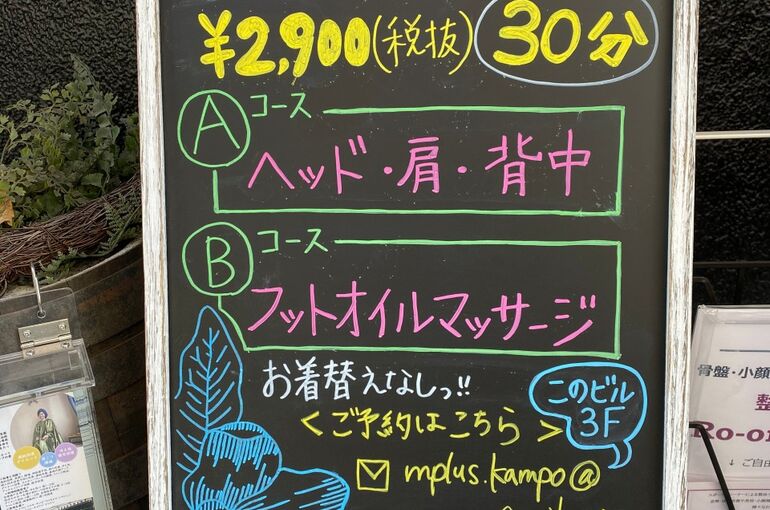 ¥2,900(税抜) 30分
Aコース
ヘッド・肩・背中
Bコース
フットオイルマッサージ
お着替えなしっ!!
<ご予約はこちら>
このビル
3F
mplus.kampo@
骨盤・小顔
整
Ro-o
↓ ご自由